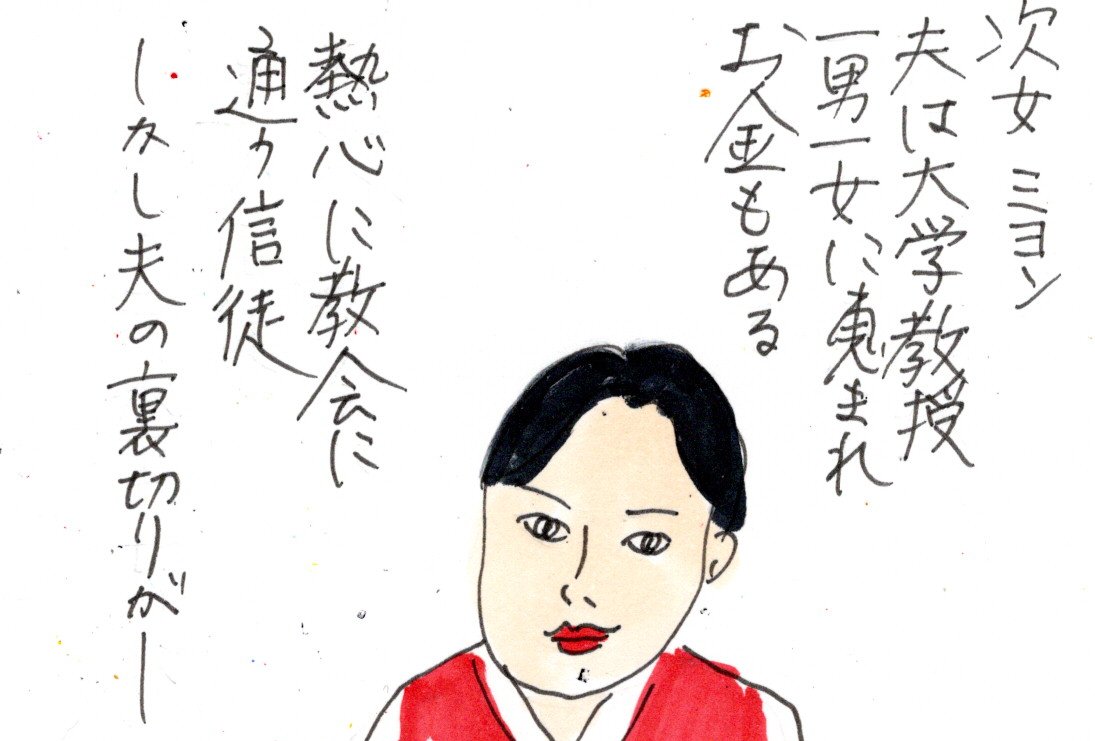 次女 ミヨン
夫は大学教授
一男一女に恵まれ
お金もある
熱心に教会に
通う信徒
しかし夫の裏切りがー